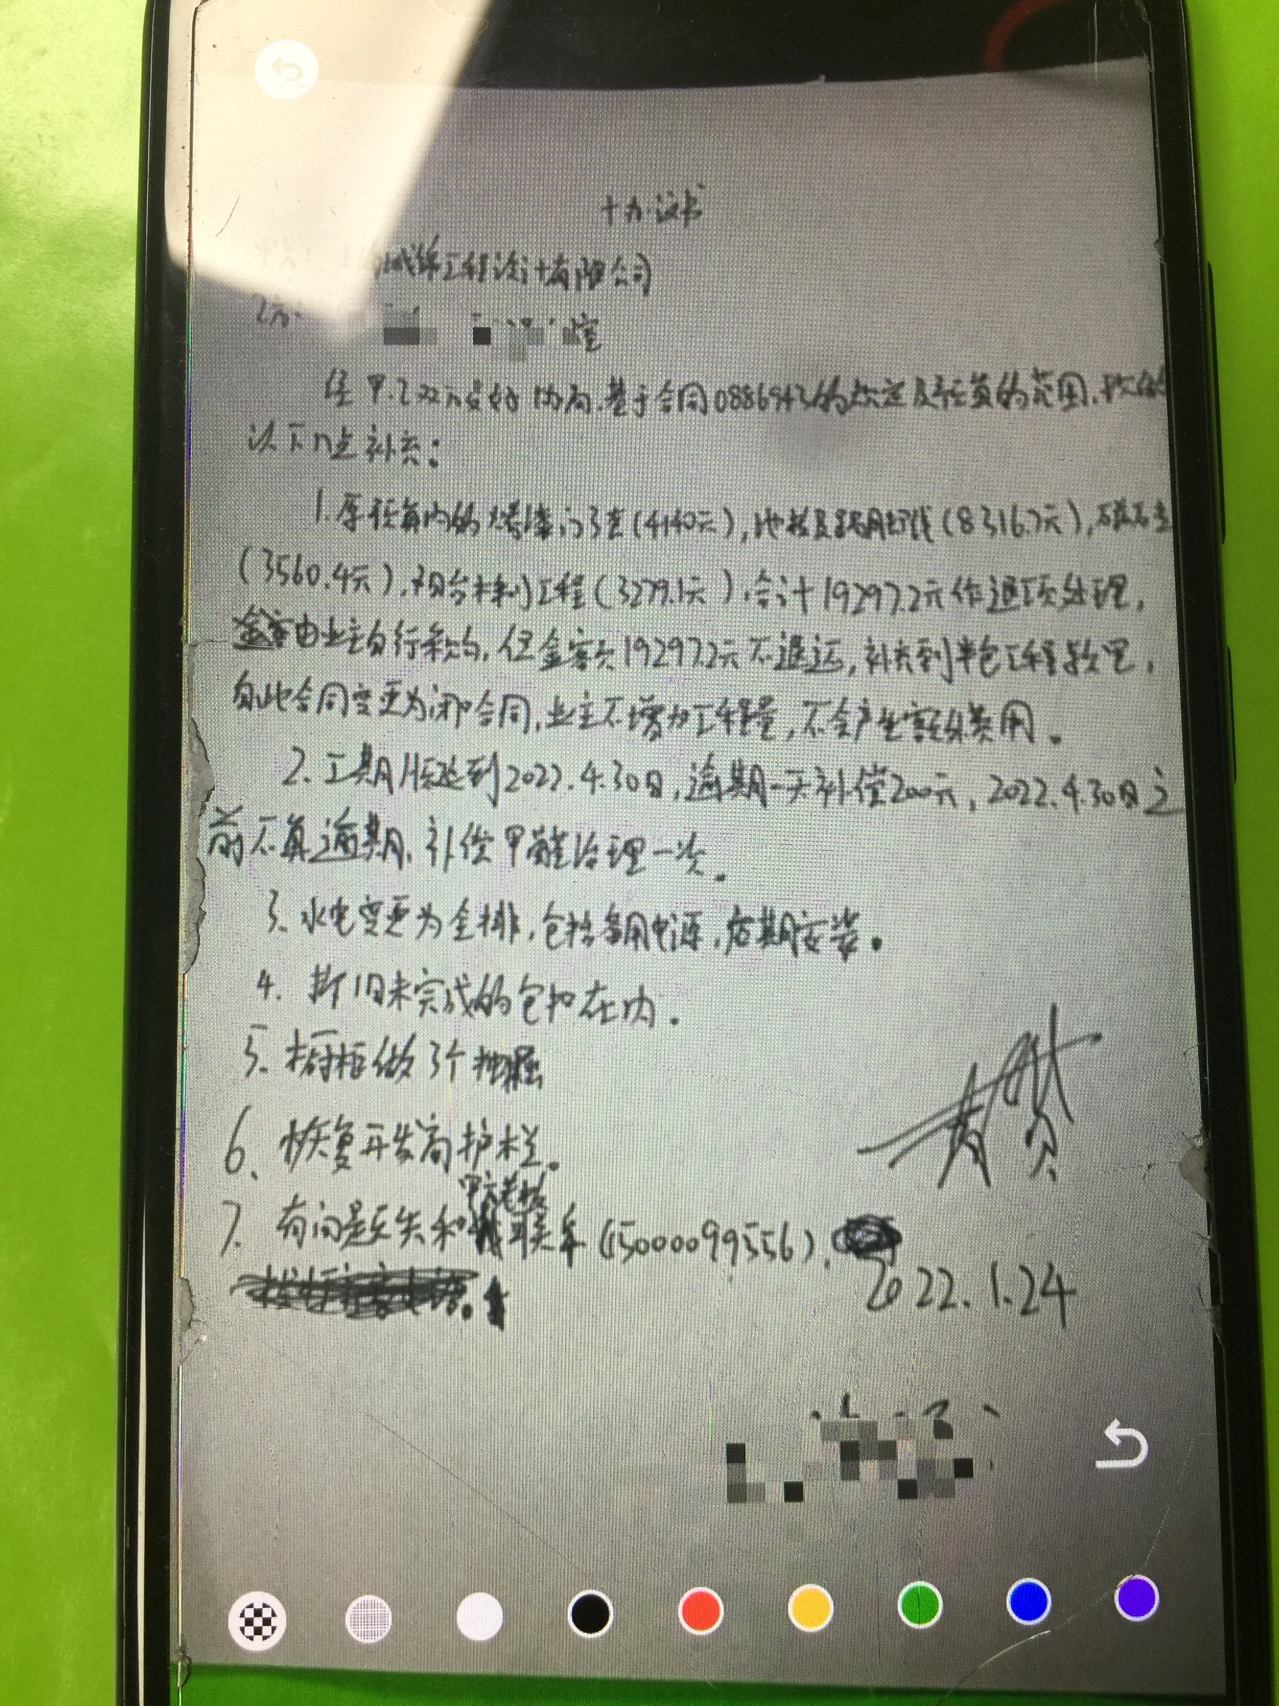 协议书
饰工程设计有限公司
乙方: 室
经甲.乙双方友好协商.基于合同0886943的约定及预算的范围.
以下几点补充:
1.原预算内的烤漆门3套(4140元),地板及踢脚线(8316.7元),
(3560.4元),阳台木制工程(3279.1元).合计19297.2元作退项处理,
由业主自行采购,但金额19297.2元不退还,补充到半包工程款里,
自此合同变更为闭口合同,业主不增加工程量,不会产生额外费用.
2.工期顺延到2022.4.30日,逾期一天补偿200元,2022.4.30日之
前不算逾期,补偿甲醛治理一次.
3.水电变更为全排,包括备用电源,后期安装.
4.拆旧未完成的包括在内.
5.橱柜做3个抽屉
6、恢复开发商护栏.
甲方老板
7.有问题先和联系(15000099556).
2022.1.24